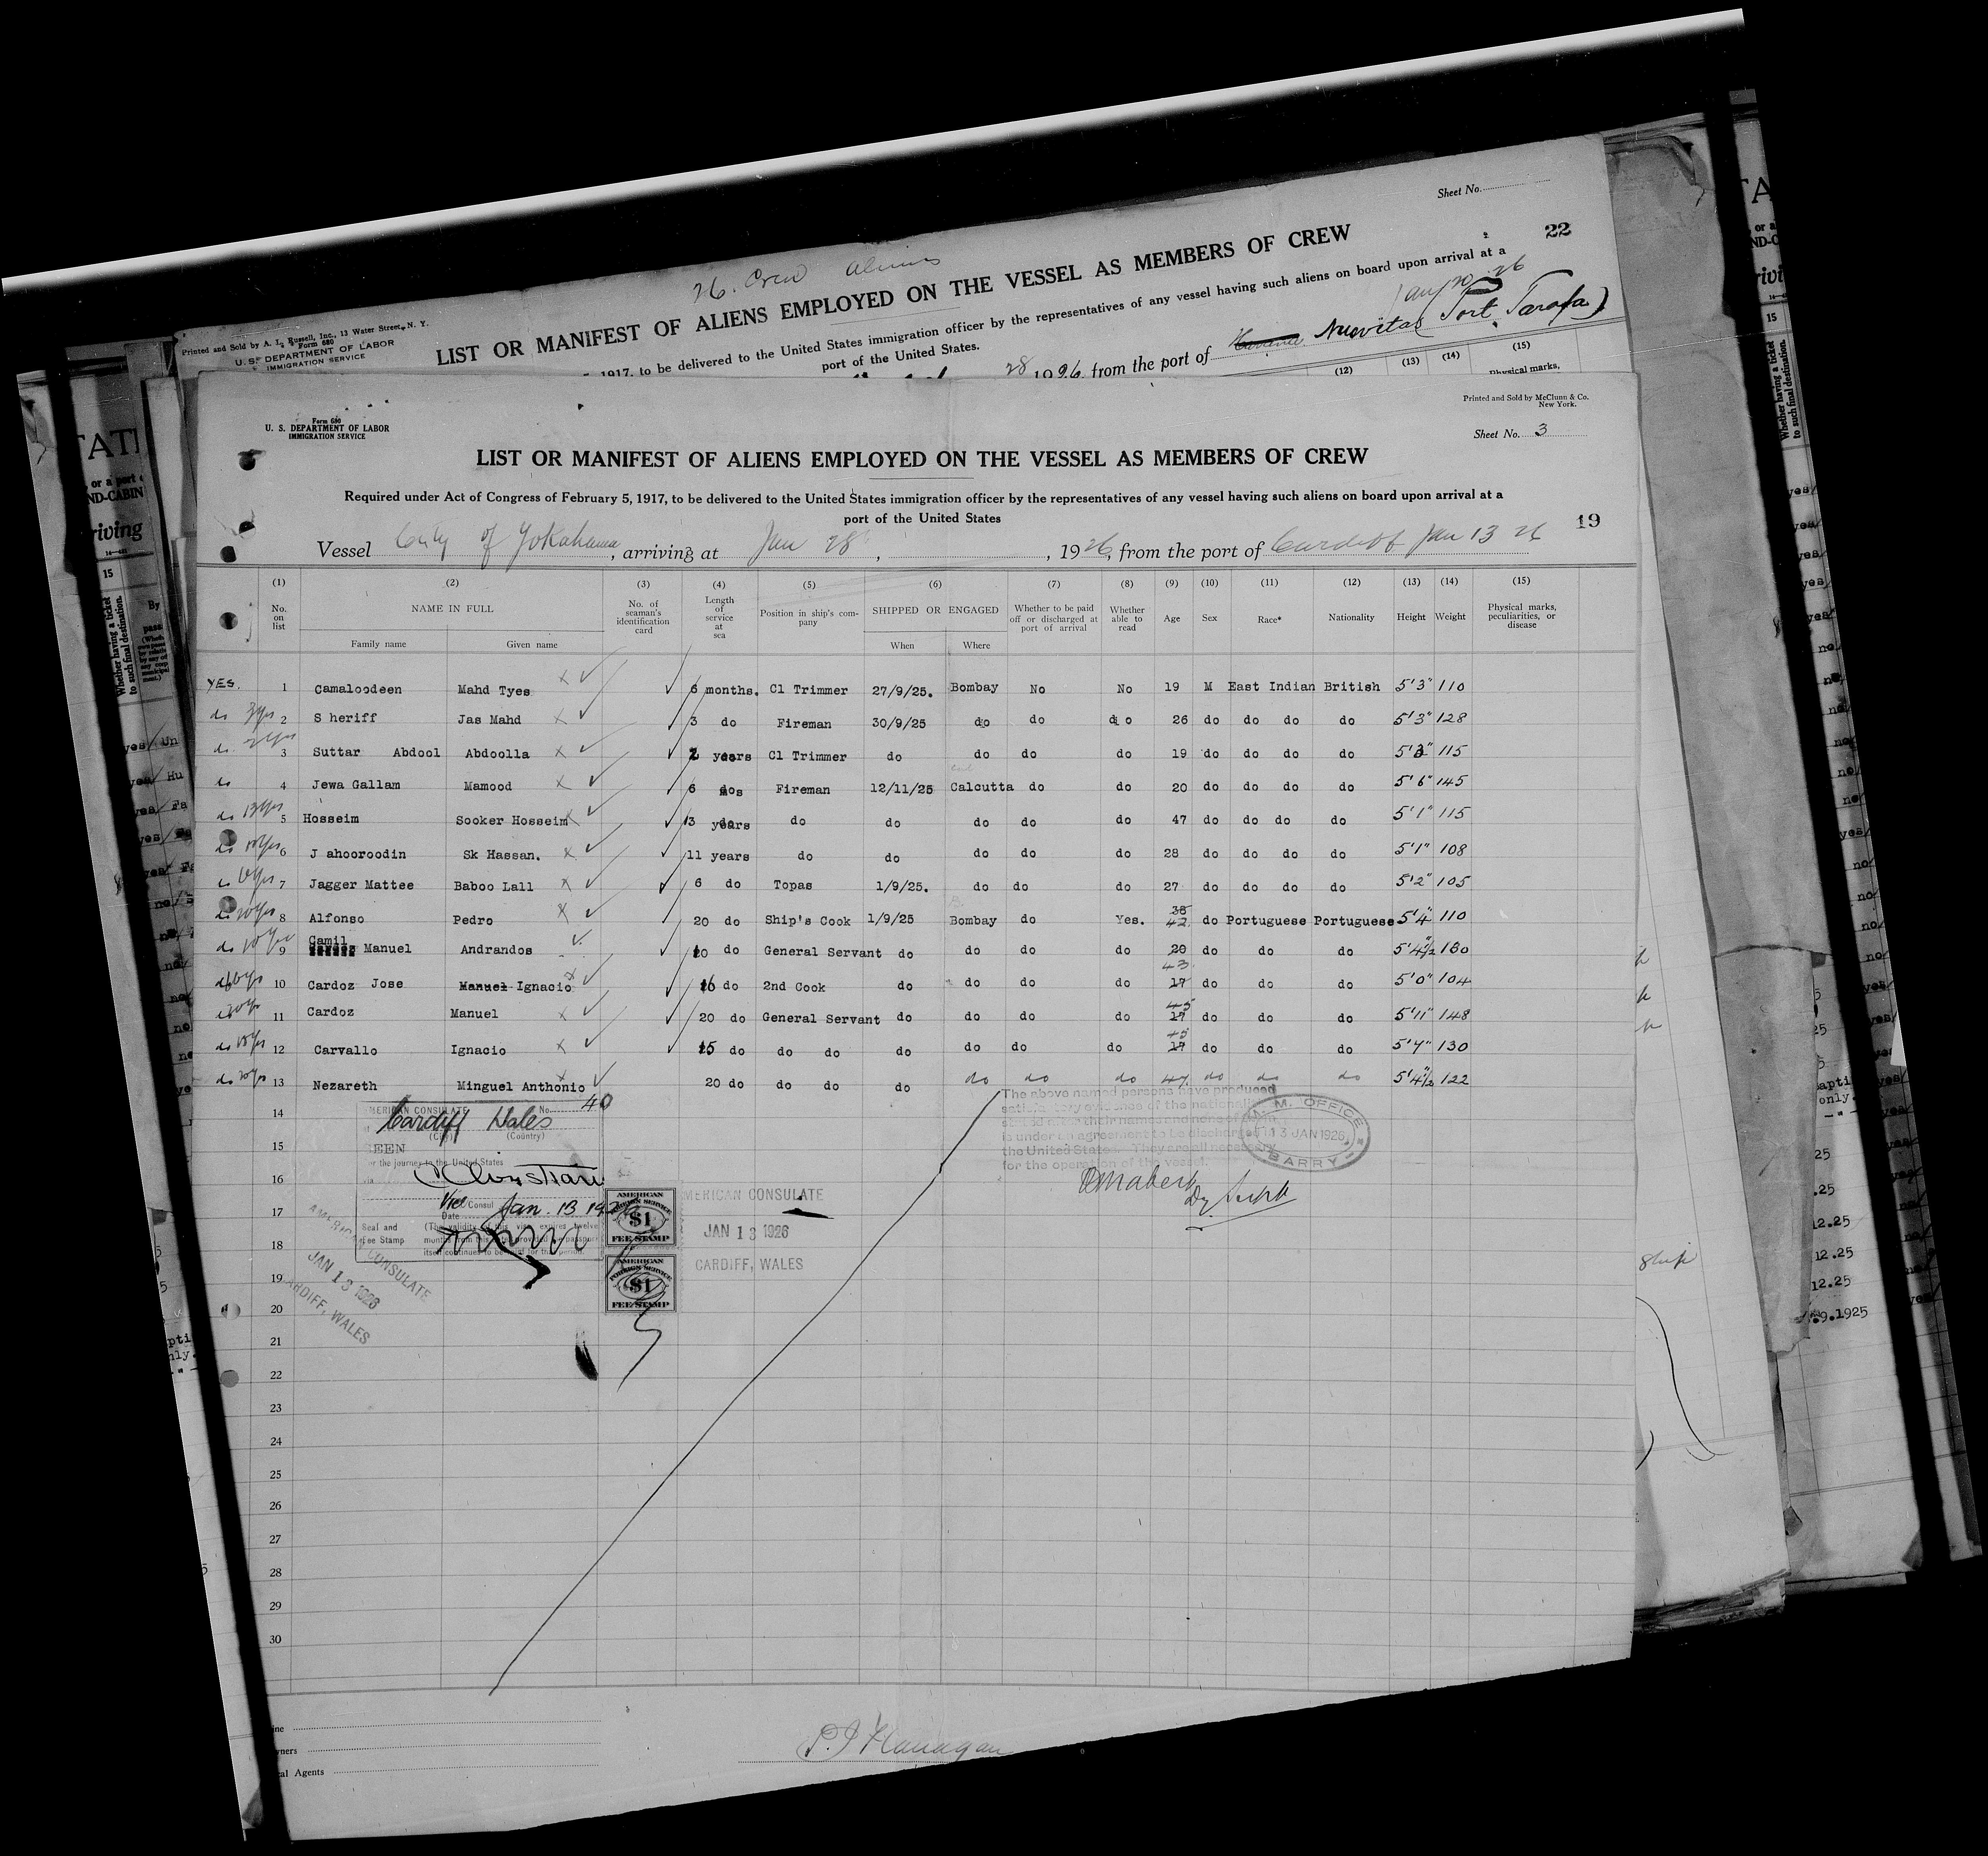 Sheet No.
22
26. Crew Aliens
Printed and Sold by A. L. Russell, Inc., 13 Water Street, N. Y.
Form 680
U. S. DEPARTMENT OF LABOR
IMMIGRATION SERVICE
LIST OR MANIFEST OF ALIENS EMPLOYED ON THE VESSEL AS MEMBERS OF CREW
1917, to be delivered to the United States immigration officer by the representatives of any vessel having such aliens on board upon arrival at a
port of the United States.
28 1926, from the port of Nuevitas (Port Tarafa)
(12) (13) (14) (15)
Physical marks,
Printed and Sold by McClunn & Co.
New York.
Form 680
U. S. DEPARTMENT OF LABOR
IMMIGRATION SERVICE
Sheet No. 3
LIST OR MANIFEST OF ALIENS EMPLOYED ON THE VESSEL AS MEMBERS OF CREW
Required under Act of Congress of February 5, 1917, to be delivered to the United States immigration officer by the representatives of any vessel having such aliens on board upon arrival at a
port of the United States
19
Vessel City of Yokahama, arriving at Jan 28, , 1926, from the port of Cardiff Jan 13 26
(1) (2) (3) (4) (5) (6) (7) (8) (9) (10) (11) (12) (13) (14) (15)
No. on list NAME IN FULL No. of seaman's identification card Length of service at sea Position in ship's company SHIPPED OR ENGAGED Whether to be paid off or discharged at port of arrival Whether able to read Age Sex Race* Nationality Height Weight Physical marks, peculiarities, or disease
Family name Given name When Where
YES. 1 Camaloodeen Mahd Tyes 6 months. Cl Trimmer 27/9/25. Bombay No No 19 M East Indian British 5'3" 110
do 3yrs 2 S heriff Jas Mahd 3 do Fireman 30/9/25 do do do 26 do do do do 5'3" 128
do 2yrs 3 Suttar Abdool Abdoolla 2 years Cl Trimmer do do do do 19 do do do do 5'3" 115
do 4 Jewa Gallam Mamood 6 mos Fireman 12/11/25 Calcutta do do 20 do do do do 5'6" 145
do 13yrs 5 Hosseim Sooker Hosseim 13 years do do do do do 47 do do do do 5'1" 115
do 6 J ahooroodin Sk Hassan. 11 years do do do do do 28 do do do do 5'1" 108
6yrs 7 Jagger Mattee Baboo Lall 6 do Topas 1/9/25. do do do 27 do do do do 5'2" 105
do 20yrs 8 Alfonso Pedro 20 do Ship's Cook 1/9/25 Bombay do Yes. 38 42 do Portuguese Portuguese 5'4" 110
do 10yrs 9 Camil Manuel Andrandos 10 do General Servant do do do do 20 do do do 5'4½" 130
do 16yrs 10 Cardoz Jose Manuel Ignacio 16 do 2nd Cook do do do do 43 17 do do do 5'0" 104
20yrs 11 Cardoz Manuel 20 do General Servant do do do do 45 17 do do do 5'11" 148
do 12 Carvallo Ignacio 15 do do do do do do do 45 17 do do do 5'4" 130
do 20yrs 13 Nezareth Minguel Anthonio 20 do do do do do do do 47 do do do 5'4½" 122
14
15
16
17
18
19
20
21
22
23
24
25
26
27
28
29
30
AMERICAN CONSULATE No. 40
Cardiff Wales
(City) (Country)
SEEN
For the journey to the United States
Vice Consul
Date Jan. 13 1926
Seal and Fee Stamp
(The validity of this visa expires twelve months from this date provided the passport itself continues to be valid for that period.)
AMERICAN FOREIGN SERVICE
$1
FEE STAMP
AMERICAN FOREIGN SERVICE
$1
FEE STAMP
AMERICAN CONSULATE
JAN 13 1926
CARDIFF, WALES
AMERICAN CONSULATE
JAN 13 1926
CARDIFF, WALES
The above named persons have produced
satisfactory evidence of the nationality
stated after their names and none of them
is under an agreement to be discharged in
the United States. They are all necessary
for the operation of the vessel.
M. M. OFFICE
13 JAN 1926
BARRY
Dy Supt
P. J Flanagan
Agents
ship